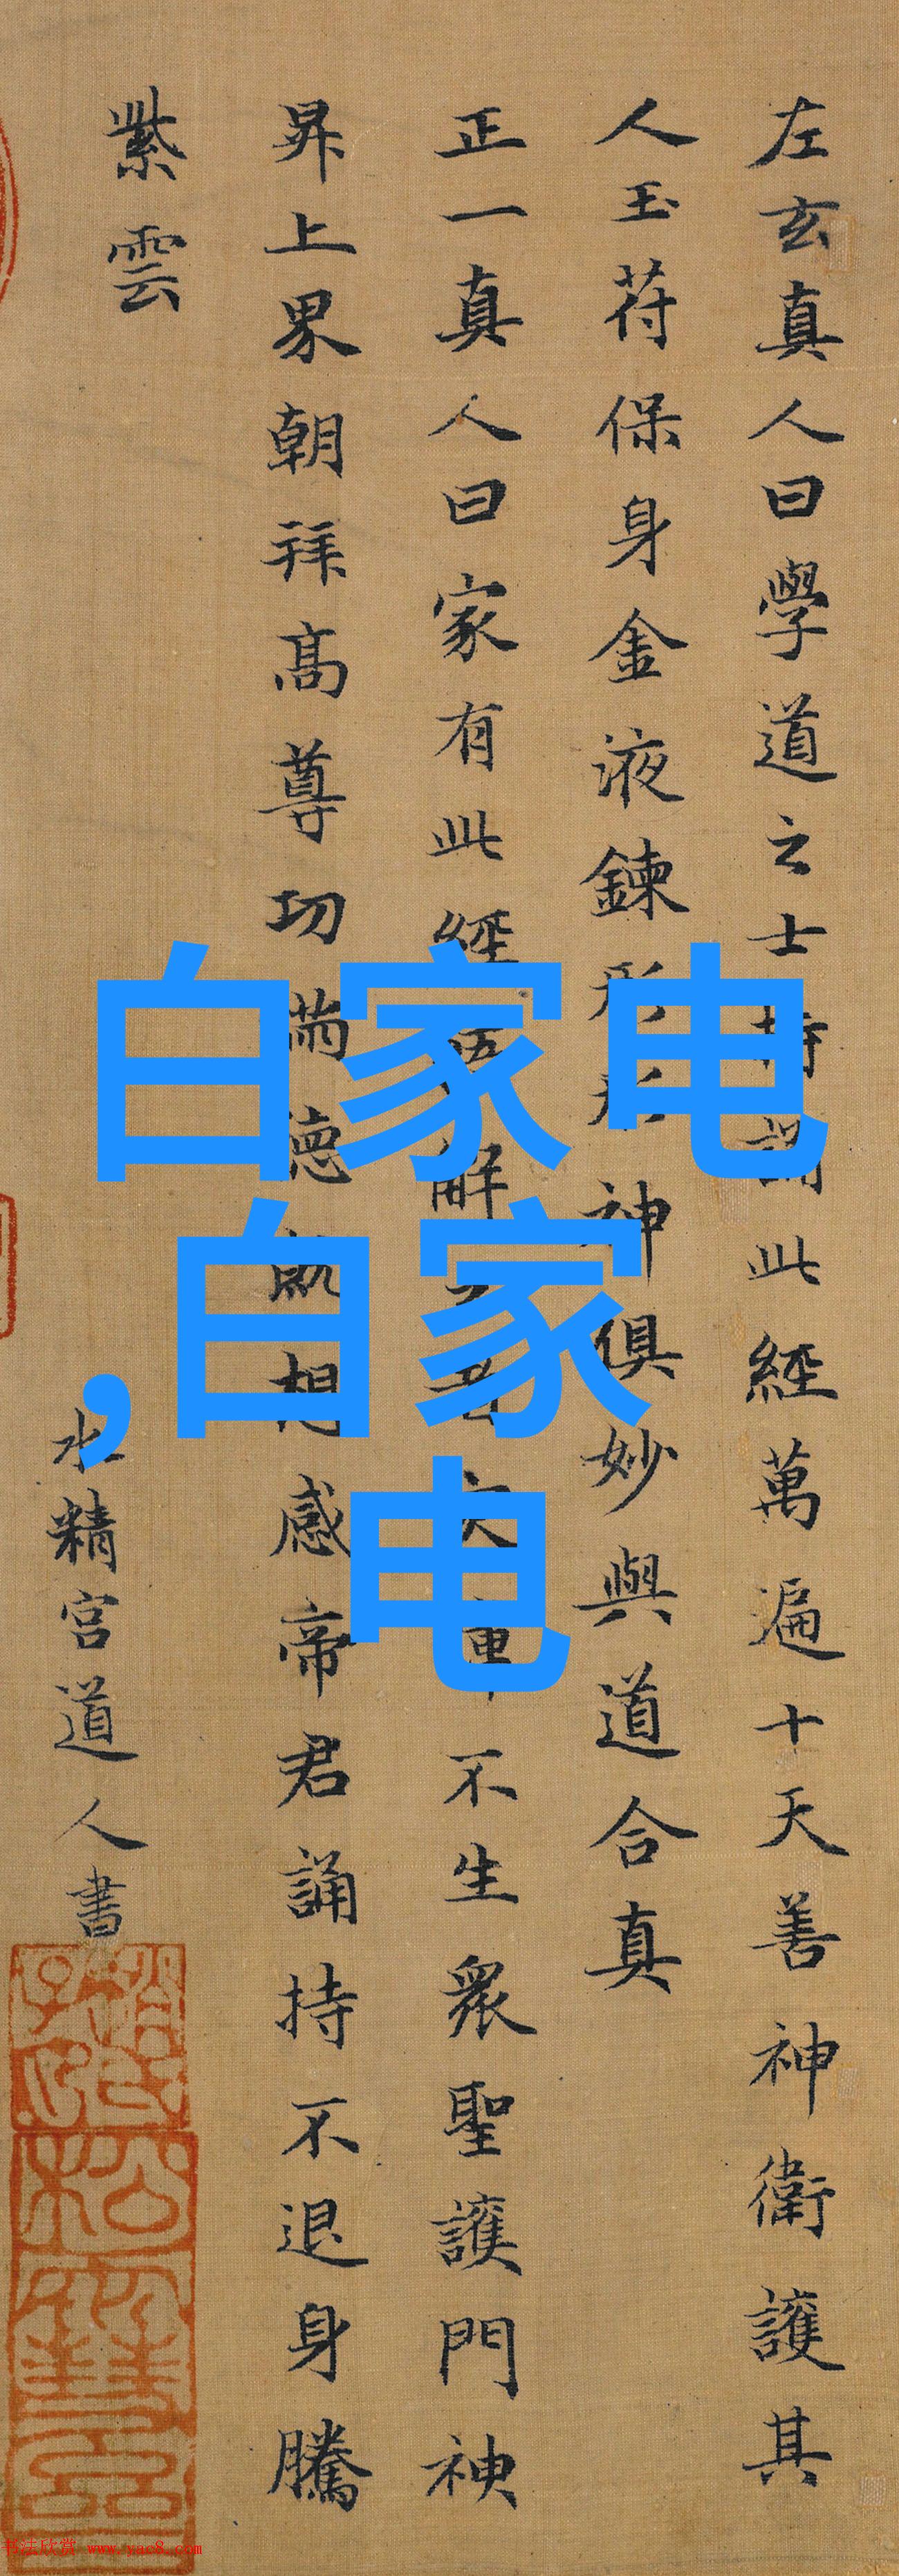 左玄真人曰學道之士持誦此經萬遍十天善神衛護其
人玉符保身金液鍊形形神俱妙與道合真
正一真人曰家有此經悟解之者災障不生衆聖護門神
昇上界朝拜高尊功滿德就相感帝君誦持不退身騰
紫雲
水精宮道人書
白家电
,白家
电
书法欣赏 www.yac8.com